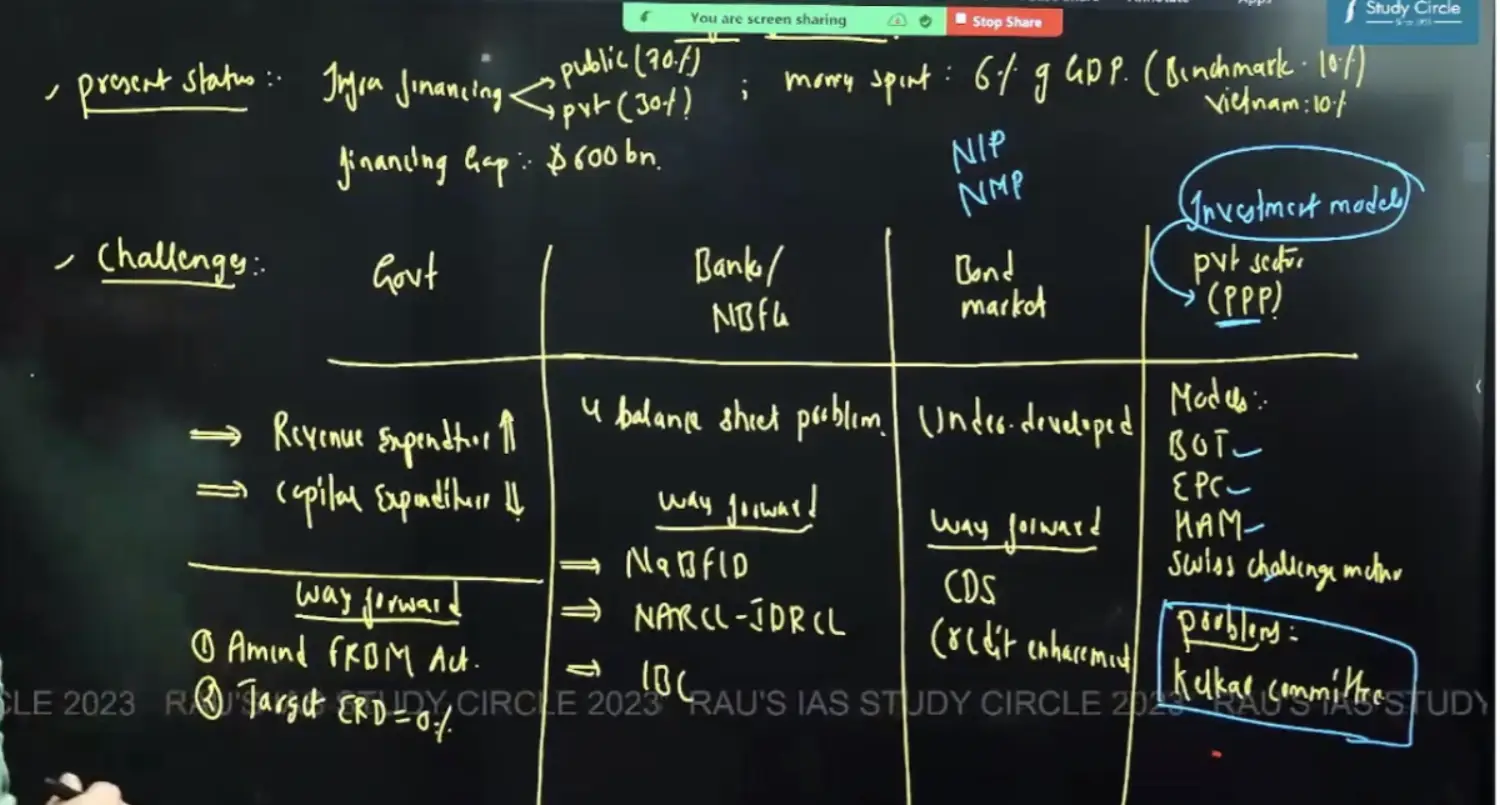 You are screen sharing
Stop Share
Study Circle
Present status:-
Infra financing
public (70%)
pvt (30%)
; money spent : 6% of GDP. (Benchmark - 10%)
Vietnam: 10%
financing Gap :- $600 bn.
NIP
NMP
Investment models
Challenges:-
Govt
Banks/
NBFCs
Bond
market
pvt sector
(PPP)
⇒ Revenue Expenditure ↑
⇒ Capital Expenditure ↓
way forward
① Amend FRBM Act.
② Target ERD = 0%
4 balance sheet problem.
way forward
⇒ NaBFID
⇒ NARCL-IDRCL
⇒ IBC
Under-developed
way forward
CDS
Credit enhancement
Models:-
BOT
EPC
HAM
Swiss challenge method
problems:-
Kelkar committee
LE 2023 RAU'S IAS STUDY CIRCLE 2023 RAU'S IAS STUDY CIRCLE 2023 RAU'S IAS STUDY